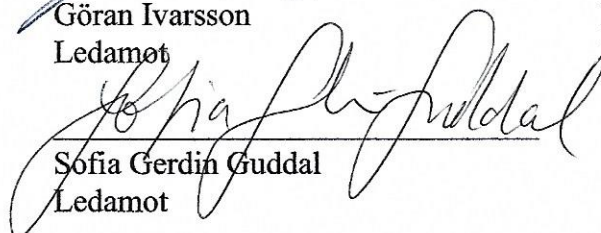 Göran Ivarsson
Ledamot
Sofia Guddal
Sofia Gerdin Guddal
Ledamot